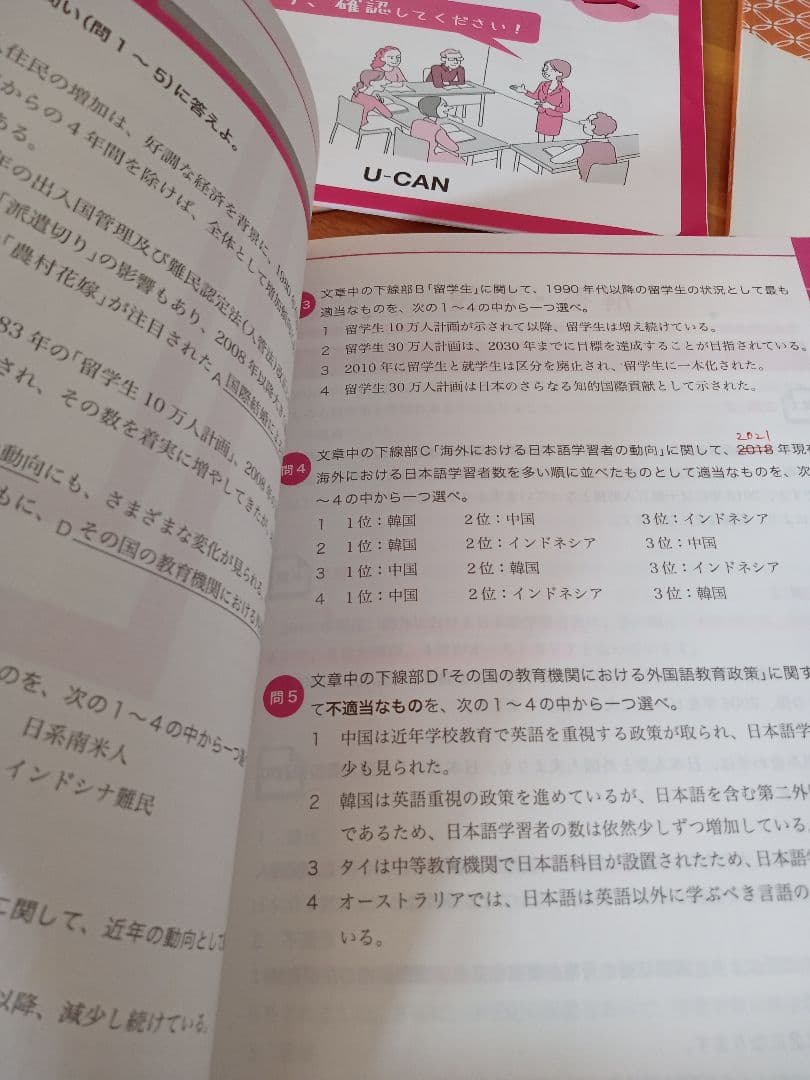 、確認してください!
U-CAN
問い(問1~5)に答えよ。
住民の増加は、好調な経済を背景に、1980
からの4年間を除けば、全体として増加傾
ある。
年の出入国管理及び難民認定法(入管法)
「派遣切り」の影響もあり、2008年以降大き
「農村花嫁」が注目されたA国際結婚による
83年の「留学生10万人計画」、2008年
され、その数を着実に増やしてきたが、
動向にも、さまざまな変化が見られる。
もに、Dその国の教育機関における外
のを、次の1~4の中から一つ選
日系南米人
インドシナ難民
に関して、近年の動向として
以降、減少し続けている。
3 文章中の下線部B「留学生」に関して、1990年代以降の留学生の状況として最も
適当なものを、次の1~4の中から一つ選べ。
1 留学生10万人計画が示されて以降、留学生は増え続けている。
2 留学生30万人計画は、2030年までに目標を達成することが目指されている。
3 2010年に留学生と就学生は区分を廃止され、留学生に一本化された。
4 留学生30万人計画は日本のさらなる知的国際貢献として示された。
2021
問4 文章中の下線部C「海外における日本語学習者の動向」に関して、2018年現在
海外における日本語学習者数を多い順に並べたものとして適当なものを、次
~4の中から一つ選べ。
1 1位:韓国 2位:中国 3位:インドネシア
2 1位:韓国 2位:インドネシア 3位:中国
3 1位:中国 2位:韓国 3位:インドネシア
4 1位:中国 2位:インドネシア 3位:韓国
問5 文章中の下線部D「その国の教育機関における外国語教育政策」に関す
て不適当なものを、次の1~4の中から一つ選べ。
1 中国は近年学校教育で英語を重視する政策が取られ、日本語学
少も見られた。
2 韓国は英語重視の政策を進めているが、日本語を含む第二外
であるため、日本語学習者の数は依然少しずつ増加している。
3 タイは中等教育機関で日本語科目が設置されたため、日本語学
4 オーストラリアでは、日本語は英語以外に学ぶべき言語の
いる。